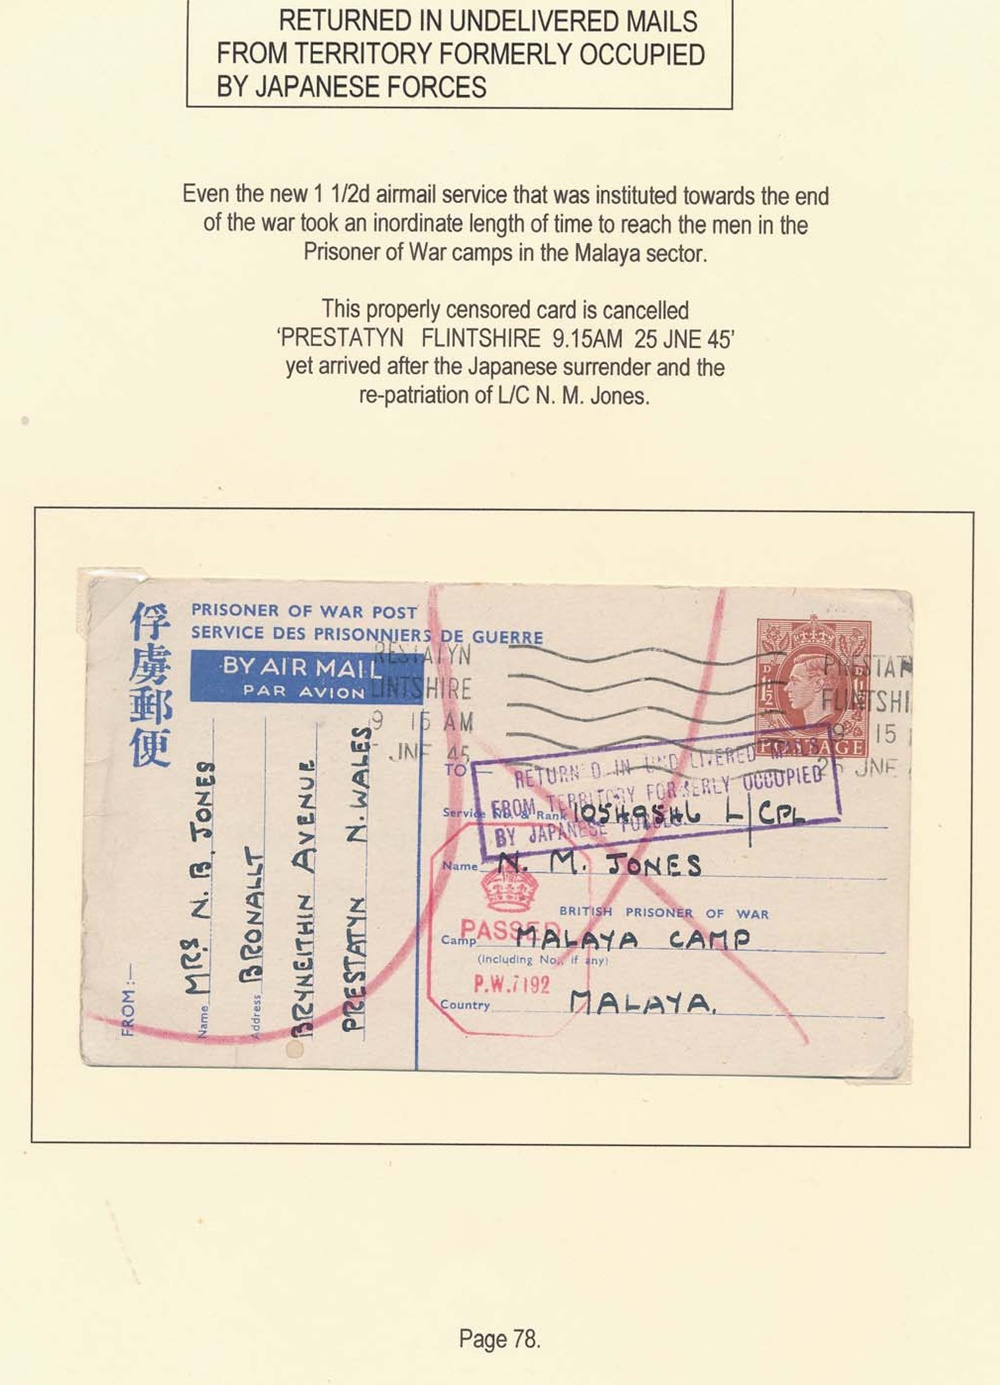 RETURNED IN UNDELIVERED MAILS
FROM TERRITORY FORMERLY OCCUPIED
BY JAPANESE FORCES
Even the new 1 1/2d airmail service that was instituted towards the end
of the war took an inordinate length of time to reach the men in the
Prisoner of War camps in the Malaya sector.
This properly censored card is cancelled
'PRESTATYN FLINTSHIRE 9.15AM 25 JNE 45'
yet arrived after the Japanese surrender and the
re-patriation of L/C N. M. Jones.
俘虜郵便
PRISONER OF WAR POST
SERVICE DES PRISONNIERS DE GUERRE
BY AIR MAIL
PAR AVION
RESTATYN
LINTSHIRE
9 15 AM
JNE 45
PRESTAT
FLINTSHI
9 15
25 JNE
1½D
1½D
POSTAGE
FROM:—
Name MRS N. B. JONES
Address BRONALLT
BRYNEITHIN AVENUE
PRESTATYN N. WALES
TO:—
RETURNED IN UNDELIVERED MAILS
FROM TERRITORY FORMERLY OCCUPIED
BY JAPANESE FORCES
Service No. & Rank 10549546 L/CPL
Name N. M. JONES
BRITISH PRISONER OF WAR
PASSED
P.W.7192
Camp MALAYA CAMP
(including No., if any)
Country MALAYA.
Page 78.